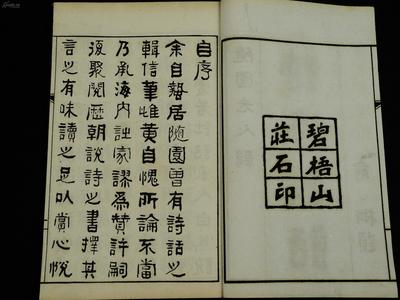 碧梧山
莊石印
自序
余自蟄居隨園曾有詩話之
輯信筆雌黃自愧所論不當
乃承海內詩家謬爲贊許嗣
復聚閱歷朝說詩之書擇其
言之有味讀之足以賞心悅